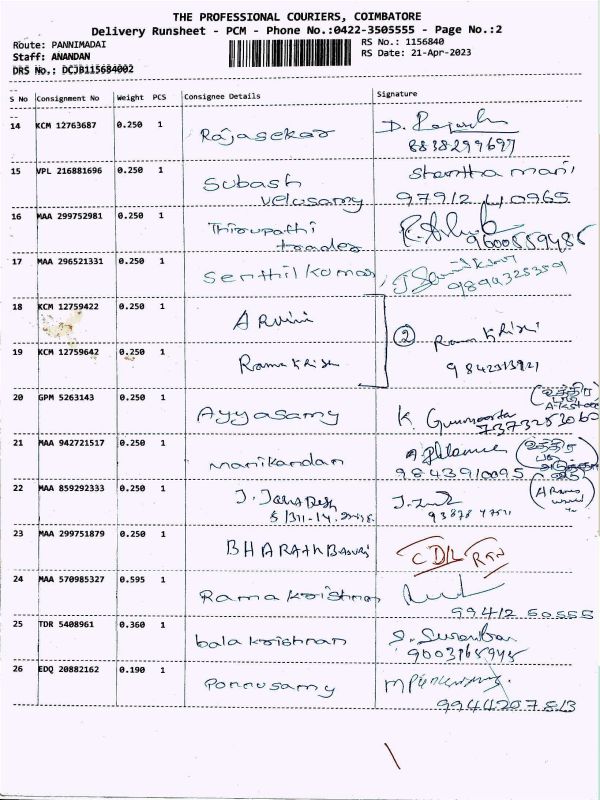 THE PROFESSIONAL COURIERS, COIMBATORE
Delivery Runsheet - PCM - Phone No.:0422-3505555 - Page No.:2
Route: PANNIMADAI
RS No.: 1156840
Staff: ANANDAN
RS Date: 21-Apr-2023
DRS No.: DCJB115684002
S No Consignment No Weight PCS Consignee Details Signature
14 KCM 12763687 0.250 1 Rajasekar
8838299697
15 VPL 216881696 0.250 1 Subash velusamy Shantha mani
97912 40965
16 MAA 299752981 0.250 1 Thirupathi traders
9600559485
17 MAA 296521331 0.250 1 Senthil kumar
9894325359
18 KCM 12759422 0.250 1 Arvini
2
19 KCM 12759642 0.250 1 Rama krish
20 GPM 5263143 0.250 1 Ayyasamy K.
7373283060
21 MAA 942721517 0.250 1 manikandan
9843910095
22 MAA 859292333 0.250 1 J.
23 MAA 299751879 0.250 1 BHARATH
24 MAA 570985327 0.595 1 Rama krishnan
99412 50555
25 TDR 5408961 0.360 1 bala krishnan
9003165945
26 EDQ 20882162 0.190 1 Ponnusamy
9944207813